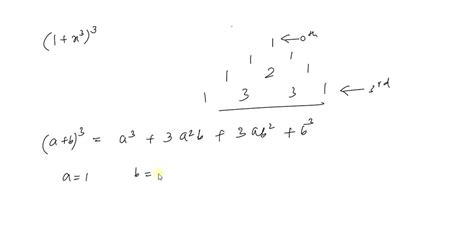 (1+x³)³
1 ← 0th
1 1
1 2 1
1 3 3 1 ← 3rd
(a+b)³ = a³ + 3a²b + 3ab² + b³
a=1 b=